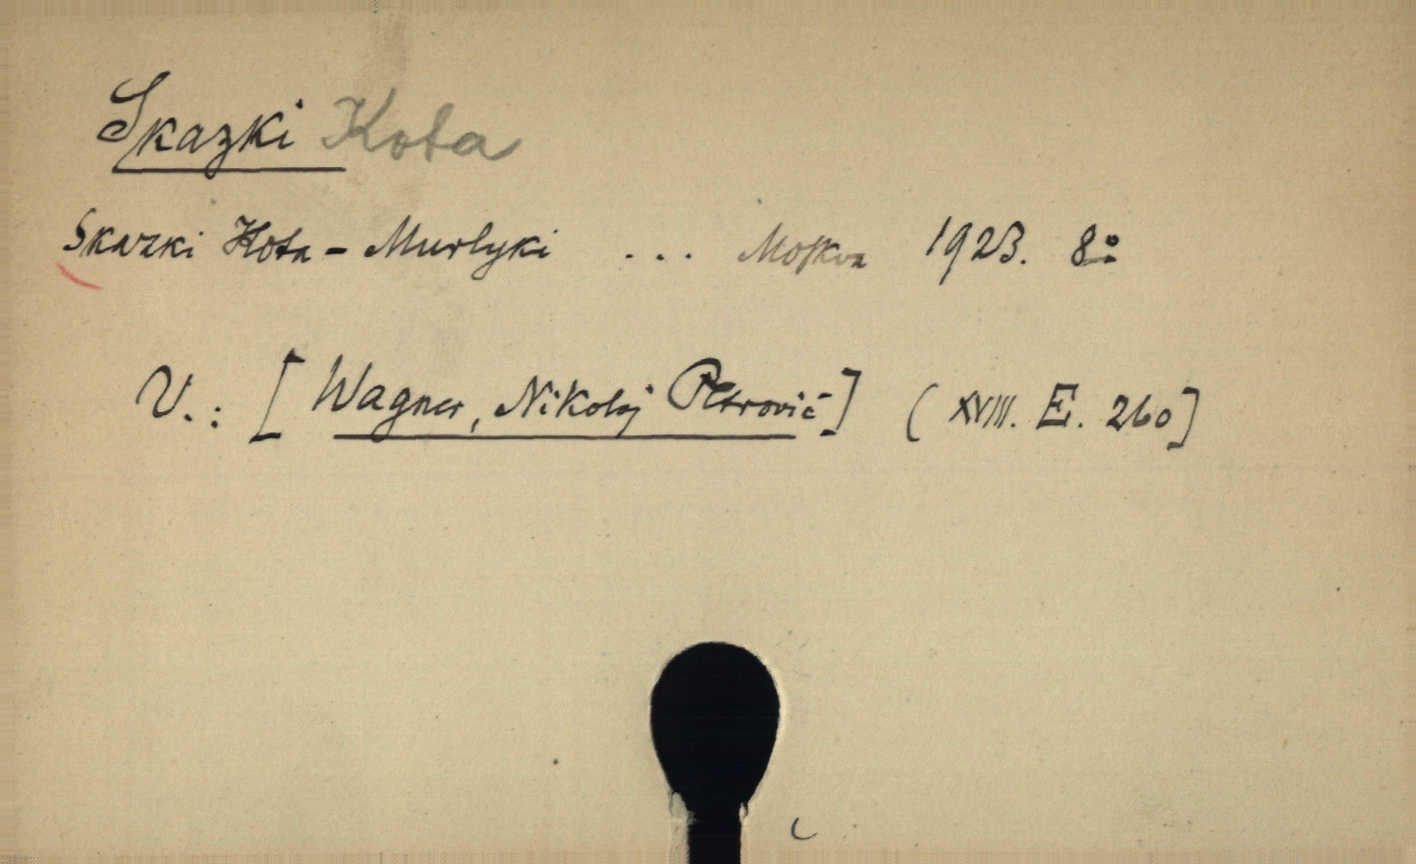 Skazki Kota
Skazki Kota - Murlyki ... Moskva 1923. 8°
V.: [Wagner, Nikolaj Petrovič] (XVIII. E. 260]